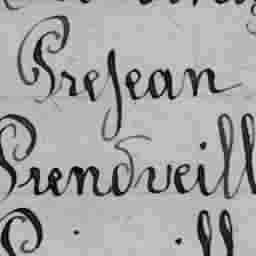 Prejean
Prendveill